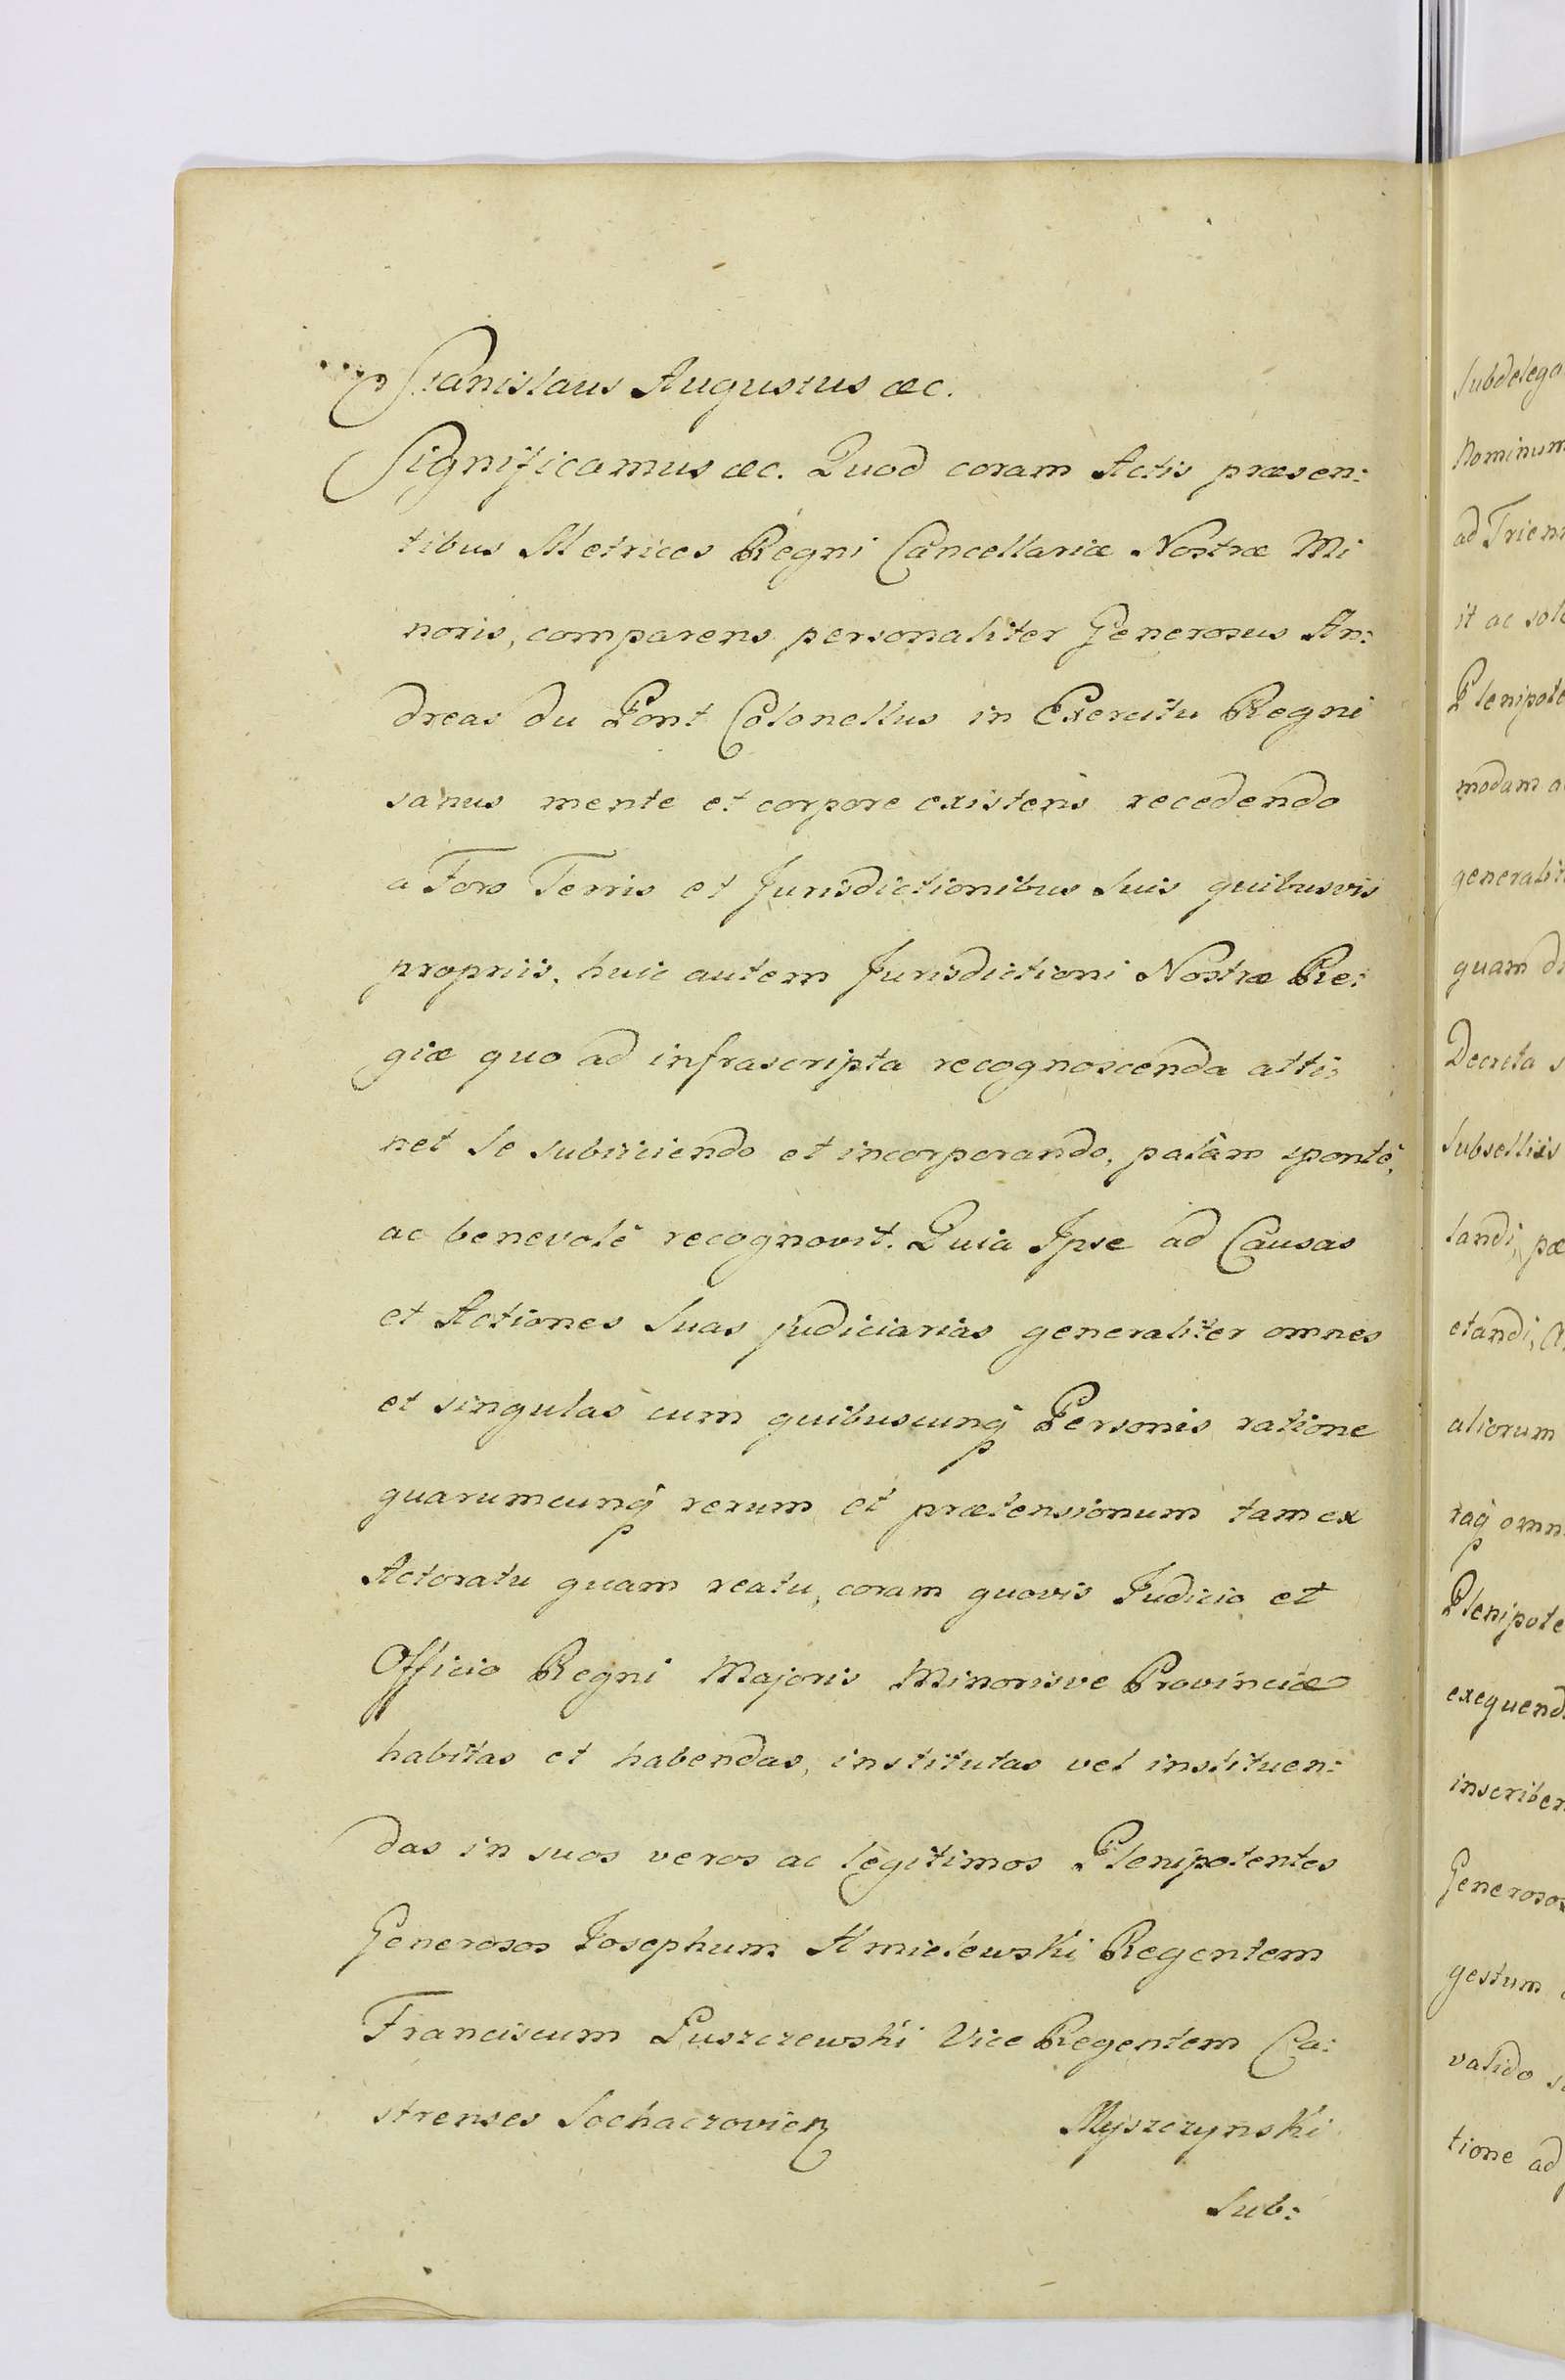 Stanislaus Augustus &c.
Significamus &c. Quod coram Actis præsen:
tibus Metrices Regni Cancellariæ Nostræ Mi
noris, comparens personaliter Generosus An:
dreas du Pont Colonellus in Exercitu Regni
sanus mente et corpore existens recedendo
a Foro Terris et Jurisdictionibus Suis quibusvis
propriis, huic autem Jurisdictioni Nostræ Re:
giæ quo ad infrascripta recognoscenda atti:
net Se subiiciendo et incorporando, palàm spontè,
ac benevolè recognovit. Quia Ipse ad Causas
et Actiones Suas judiciarias generaliter omnes
et singulas cum quibuscunq Personis ratione
quarumcunq rerum et prætensionum tam ex
Actoratu quam reatu, coram quovis Judicio et
Officio Regni Majoris Minorisve Provinciæ
habitas et habendas, institutas vel instituen:
das in suos veros ac legitimos Plenipotentes
Generosos Josephum Kmielewski Regentem
Franciscum Puszczewski Vice Regentem Ca:
strenses Sochaczovien
Myszczynski
Sub:
Subdelega
Nominum
ad Trien
it ac sol
Plenipote
modum a
generalit
quam d
Decreta s
Subselliis
landi, pa
etandi, A
aliorum
raq omn
Plenipote
exequend
inscriben
Generosos
gestum
valido s
tione ad